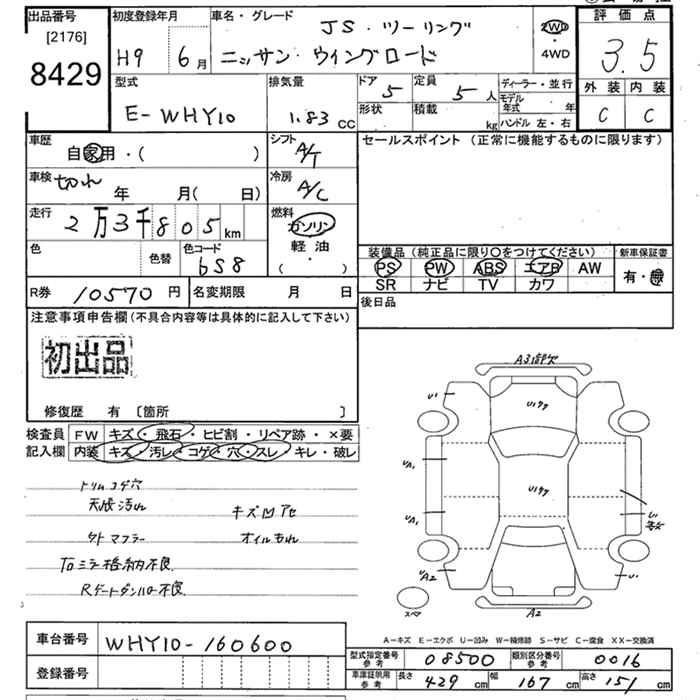 出品番号
[2176]
8429
初度登録年月
H9 6月
車名・グレード
JS・ツーリング
ニッサン・ウイングロード
2WD
・
4WD
評価点
3.5
外装 内装
C C
型式
E-WHY10
排気量
1.83 CC
ドア 5
定員 5 人
形状
積載 kg
ディーラー・並行
モデル年式 年
ハンドル 左・右
車歴
自家用・( )
シフト
A/T
セールスポイント (正常に機能するものに限ります)
車検 切れ 年 月( 日)
冷房
A/C
走行
2万3千805km
燃料
ガソリン
軽油
( ・ )
色
色替
色コード
6S8
装備品 (純正品に限り○をつけてください)
新車保証書
PS PW ABS エアB AW
有・無
SR ナビ TV カワ
R券 10570 円
名変期限 月 日
後日品
注意事項申告欄(不具合内容等は具体的に記入して下さい)
初出品
修復歴 有 〔箇所 〕
検査員
記入欄
FW キズ・飛石・ヒビ割・リペア跡・×要
内装 キズ・汚レ・コゲ・穴・スレ・キレ・破レ
トリムコゲ穴
天張汚れ
キズ凹アセ
外マフラー
オイルもれ
Toミラ格納不良
Rゲートダンパー不良
U1
U1ケケ
UA1
U1ケケ
UA1
UA2
U1
スペア
A2
A-キズ E-エクボ U-凹み W-補修跡 S-サビ C-腐食 XX-交換済
車台番号
WHY10-160600
登録番号
型式指定番号
参考
08500
類別区分番号
参考
0016
車庫証明用
参考
長さ 429 cm
幅 167 cm
高さ 151 cm